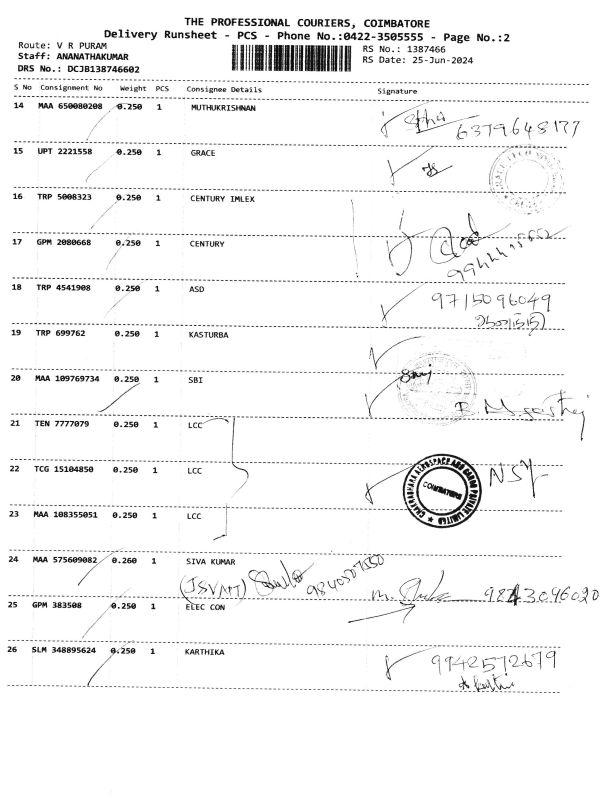 THE PROFESSIONAL COURIERS, COIMBATORE
Delivery Runsheet - PCS - Phone No.:0422-3505555 - Page No.:2
Route: V R PURAM
RS No.: 1387466
Staff: ANANATHAKUMAR
RS Date: 25-Jun-2024
DRS No.: DCJB138746602
S No Consignment No Weight PCS Consignee Details Signature
14 MAA 650080208 0.250 1 MUTHUKRISHNAN
6379648177
15 UPT 2221558 0.250 1 GRACE
16 TRP 5008323 0.250 1 CENTURY IMLEX
17 GPM 2080668 0.250 1 CENTURY
18 TRP 4541908 0.250 1 ASD 9715096049
19 TRP 699762 0.250 1 KASTURBA
20 MAA 109769734 0.250 1 SBI
21 TEN 7777079 0.250 1 LCC
22 TCG 15104850 0.250 1 LCC
23 MAA 108355051 0.250 1 LCC
24 MAA 575609082 0.260 1 SIVA KUMAR
25 GPM 383508 0.250 1 ELEC CON
26 SLM 348895624 0.250 1 KARTHIKA 9942572679